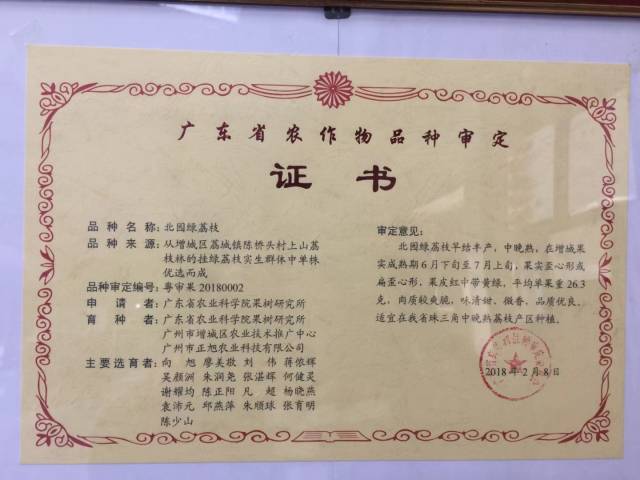 广东省农作物品种审定
证书
品种名称：北园绿荔枝
品种来源：从增城区荔城镇陈桥头村上山荔
枝林的挂绿荔枝实生群体中单株
优选而成
品种审定编号：粤审果 20180002
申请者：广东省农业科学院果树研究所
育种者：广东省农业科学院果树研究所
广州市增城区农业技术推广中心
广州市正旭农业科技有限公司
主要选育者：向旭 廖美敬 刘伟 蒋侬辉
吴颜洲 朱润尧 张湛辉 何健灵
谢耀均 陈正阳 凡超 杨晓燕
袁沛元 邱燕萍 朱顺球 张育明
陈少山
审定意见：
北园绿荔枝早结丰产，中晚熟，在增城果
实成熟期6月下旬至7月上旬，果实歪心形或
扁歪心形，果皮红中带黄绿，平均单果重26.3
克，肉质较爽脆，味清甜、微香，品质优良。
适宜在我省珠三角中晚熟荔枝产区种植。
2018年2月8日